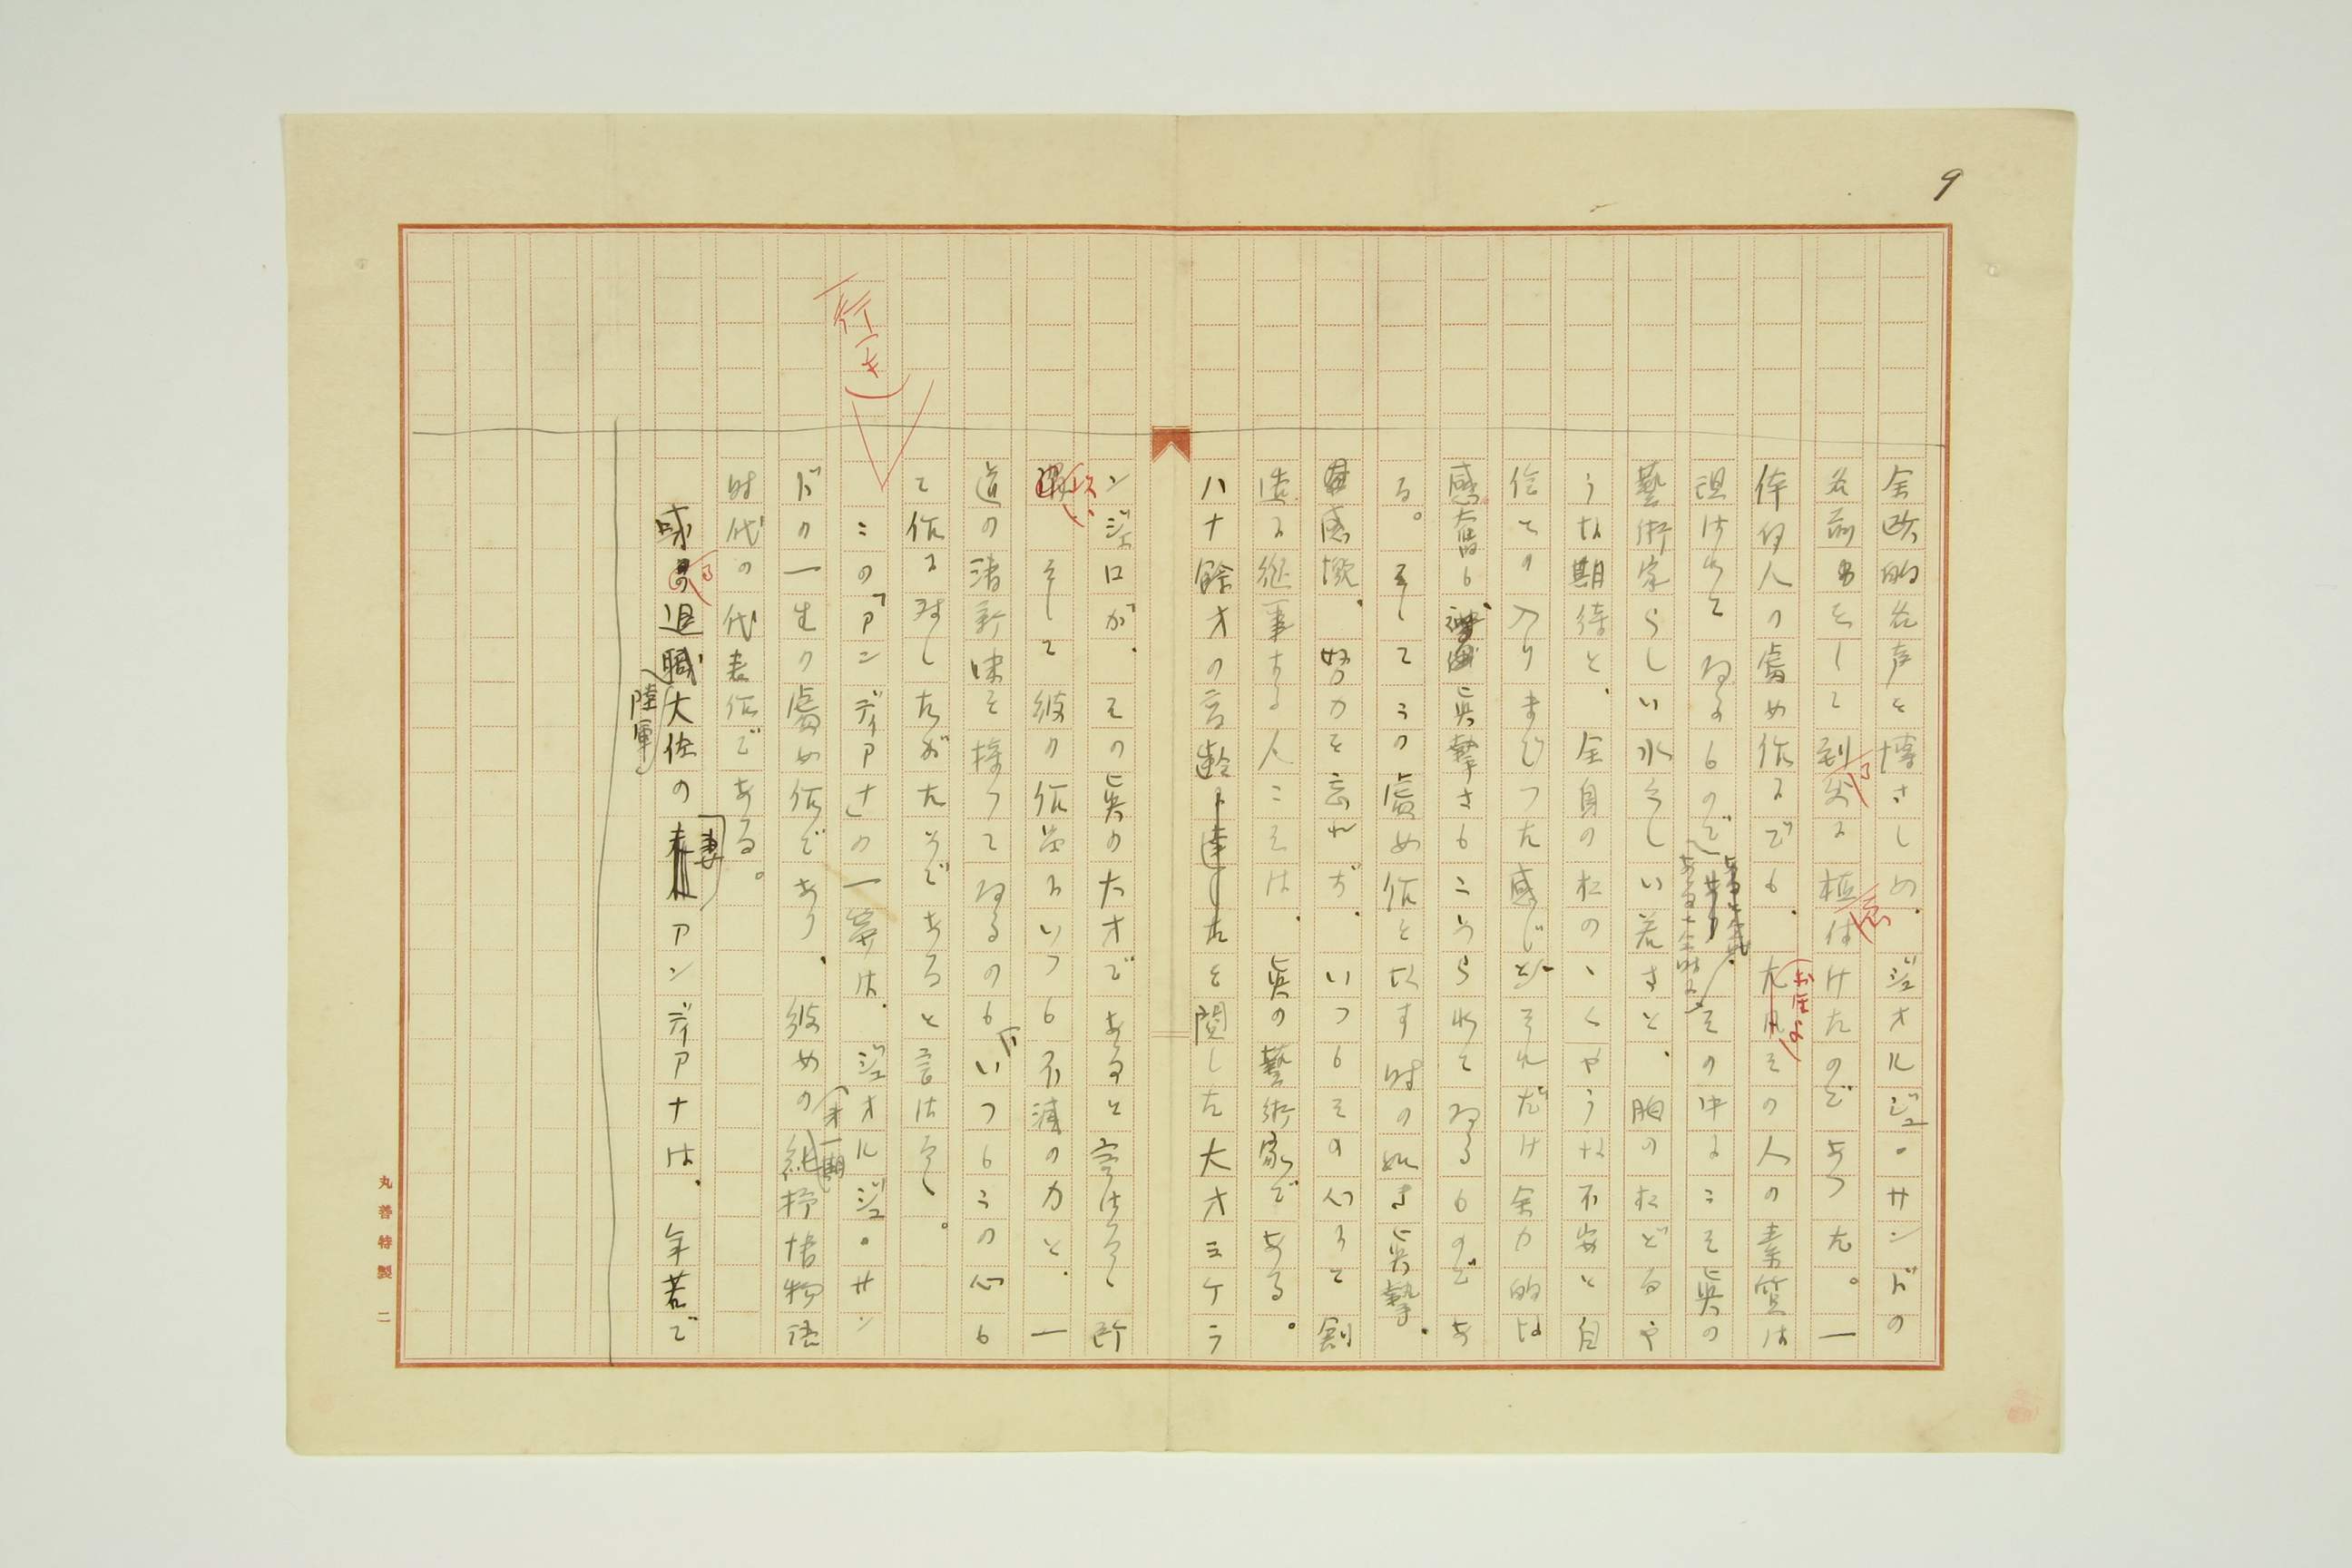 9
全欧的名声を博さしめ、ジェオルジュ・サンドの
名前をして到る処に植付けたのであつた。一
体何人の處女作にでも、大凡その人の素質は
現はれてゐるもので その中にこそ眞の
藝術家らしい水々しい若さと、胸のおどるや
うな期待と、全身のおのゝくやうな不安と自
信との入りまじつた感じと それだけ全力的な
感奮も 眞摯さもこめられてゐるものであ
る。そしてこの處女作を故す時の如き眞摯、
感慨、努力を忘れず、いつもその心もて創
造に従事する人こそは、眞の藝術家である。
八十餘才の高齢 を閲した大才ミケラ
ンジェロが、その眞の大才であると言はるゝ所
以 そして彼の作品にいつも不滅の力と、一
道の清新味を持つてゐるのも いつもこの心も
て作に対したがためであると言はるゝ。
行アキ
この「アンディアナ」の一篇は、ジェオルジュ・サン
ドの一生の處女作であり、彼女の 抒情物語
第一期
時代の代表作である。
退職大佐の 妻 アンディアナは、年若で
陸軍
丸善特製 二